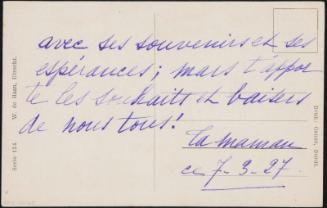 avec ses souvenirs et ses
espérances; mars t'appor
te les souhaits et baisers
de nous tous!
ta maman
ce 7-3-27.
W. de Haan, Utrecht.
Serie 134